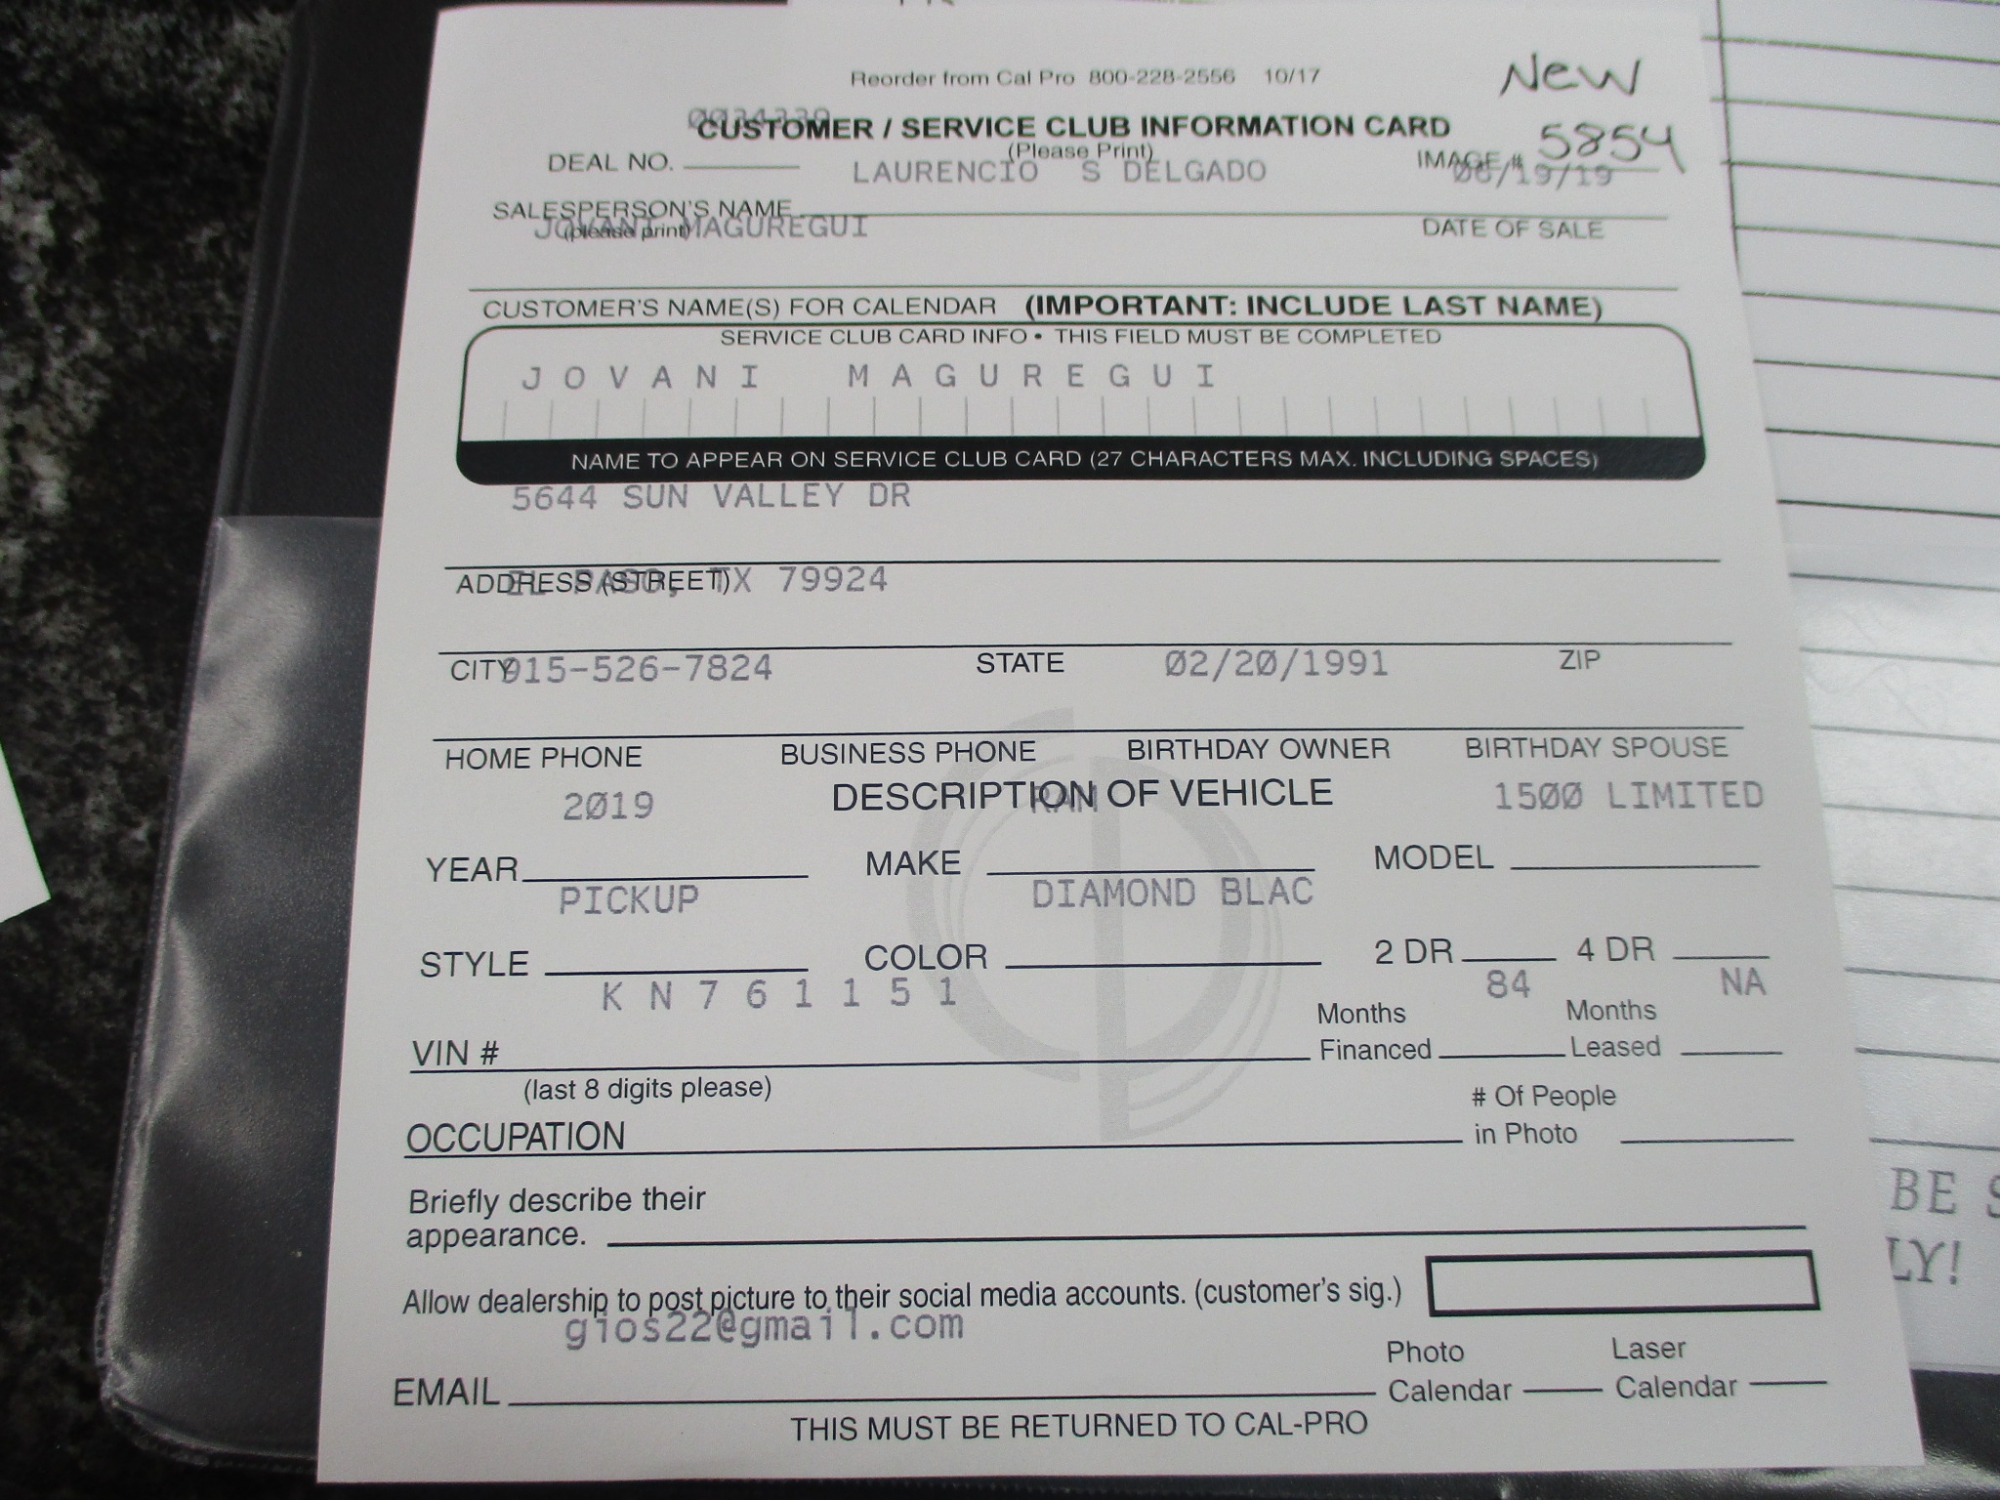 Reorder from Cal Pro 800-228-2556 10/17
New
CUSTOMER / SERVICE CLUB INFORMATION CARD
(Please Print)
DEAL NO.
LAURENCIO S DELGADO
IMAGE # 5854
06/19/19
SALESPERSON'S NAME
(please print)
JOVANI MAGUREGUI
DATE OF SALE
CUSTOMER'S NAME(S) FOR CALENDAR (IMPORTANT: INCLUDE LAST NAME)
SERVICE CLUB CARD INFO • THIS FIELD MUST BE COMPLETED
JOVANI MAGUREGUI
NAME TO APPEAR ON SERVICE CLUB CARD (27 CHARACTERS MAX. INCLUDING SPACES)
5644 SUN VALLEY DR
ADDRESS (STREET)
EL PASO, TX 79924
CITY STATE ZIP
915-526-7824 02/20/1991
HOME PHONE BUSINESS PHONE BIRTHDAY OWNER BIRTHDAY SPOUSE
DESCRIPTION OF VEHICLE
2019 RAM 1500 LIMITED
YEAR MAKE MODEL
PICKUP DIAMOND BLAC
STYLE COLOR 2 DR 4 DR
KN761151 84 NA
VIN # Months Financed Months Leased
(last 8 digits please)
OCCUPATION # Of People in Photo
Briefly describe their
appearance.
Allow dealership to post picture to their social media accounts. (customer's sig.)
gios22@gmail.com
EMAIL Photo Calendar Laser Calendar
THIS MUST BE RETURNED TO CAL-PRO
BE
LY!